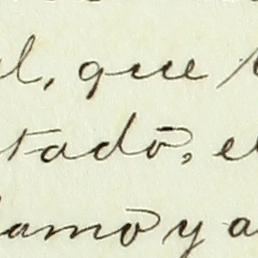 l, que
tado, el
lamo y a